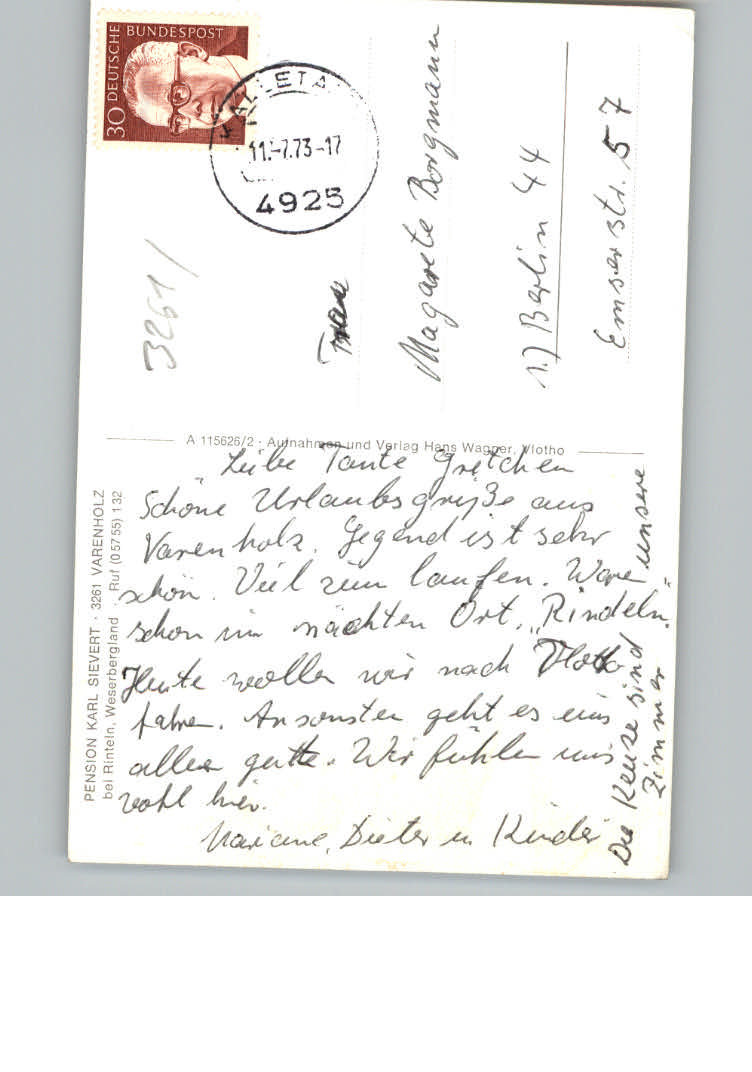 30 DEUTSCHE BUNDESPOST
KALLETA
11.-7.73-17
4925
3261/
Frau
Magarete Borgmann
1.) Berlin 44
Emserstr. 57
A 115626/2 · Aufnahmen und Verlag Hans Wagner, Vlotho
PENSION KARL SIEVERT · 3261 VARENHOLZ
bei Rinteln, Weserbergland · Ruf (05755) 132
Liebe Tante Gretchen
Schöne Urlaubsgrüße aus
Varenholz. Gegend ist sehr
schön. Viel zum laufen. Waren
schon im nächten Ort, "Rindeln"
Heute wollen wir nach Vlotho
fahren. Ansonsten geht es uns
allen gut. Wir fühlen uns
wohl hier.
Mariane, Dieter u Kinder
Die Kreuze sind unsere
Zimmer